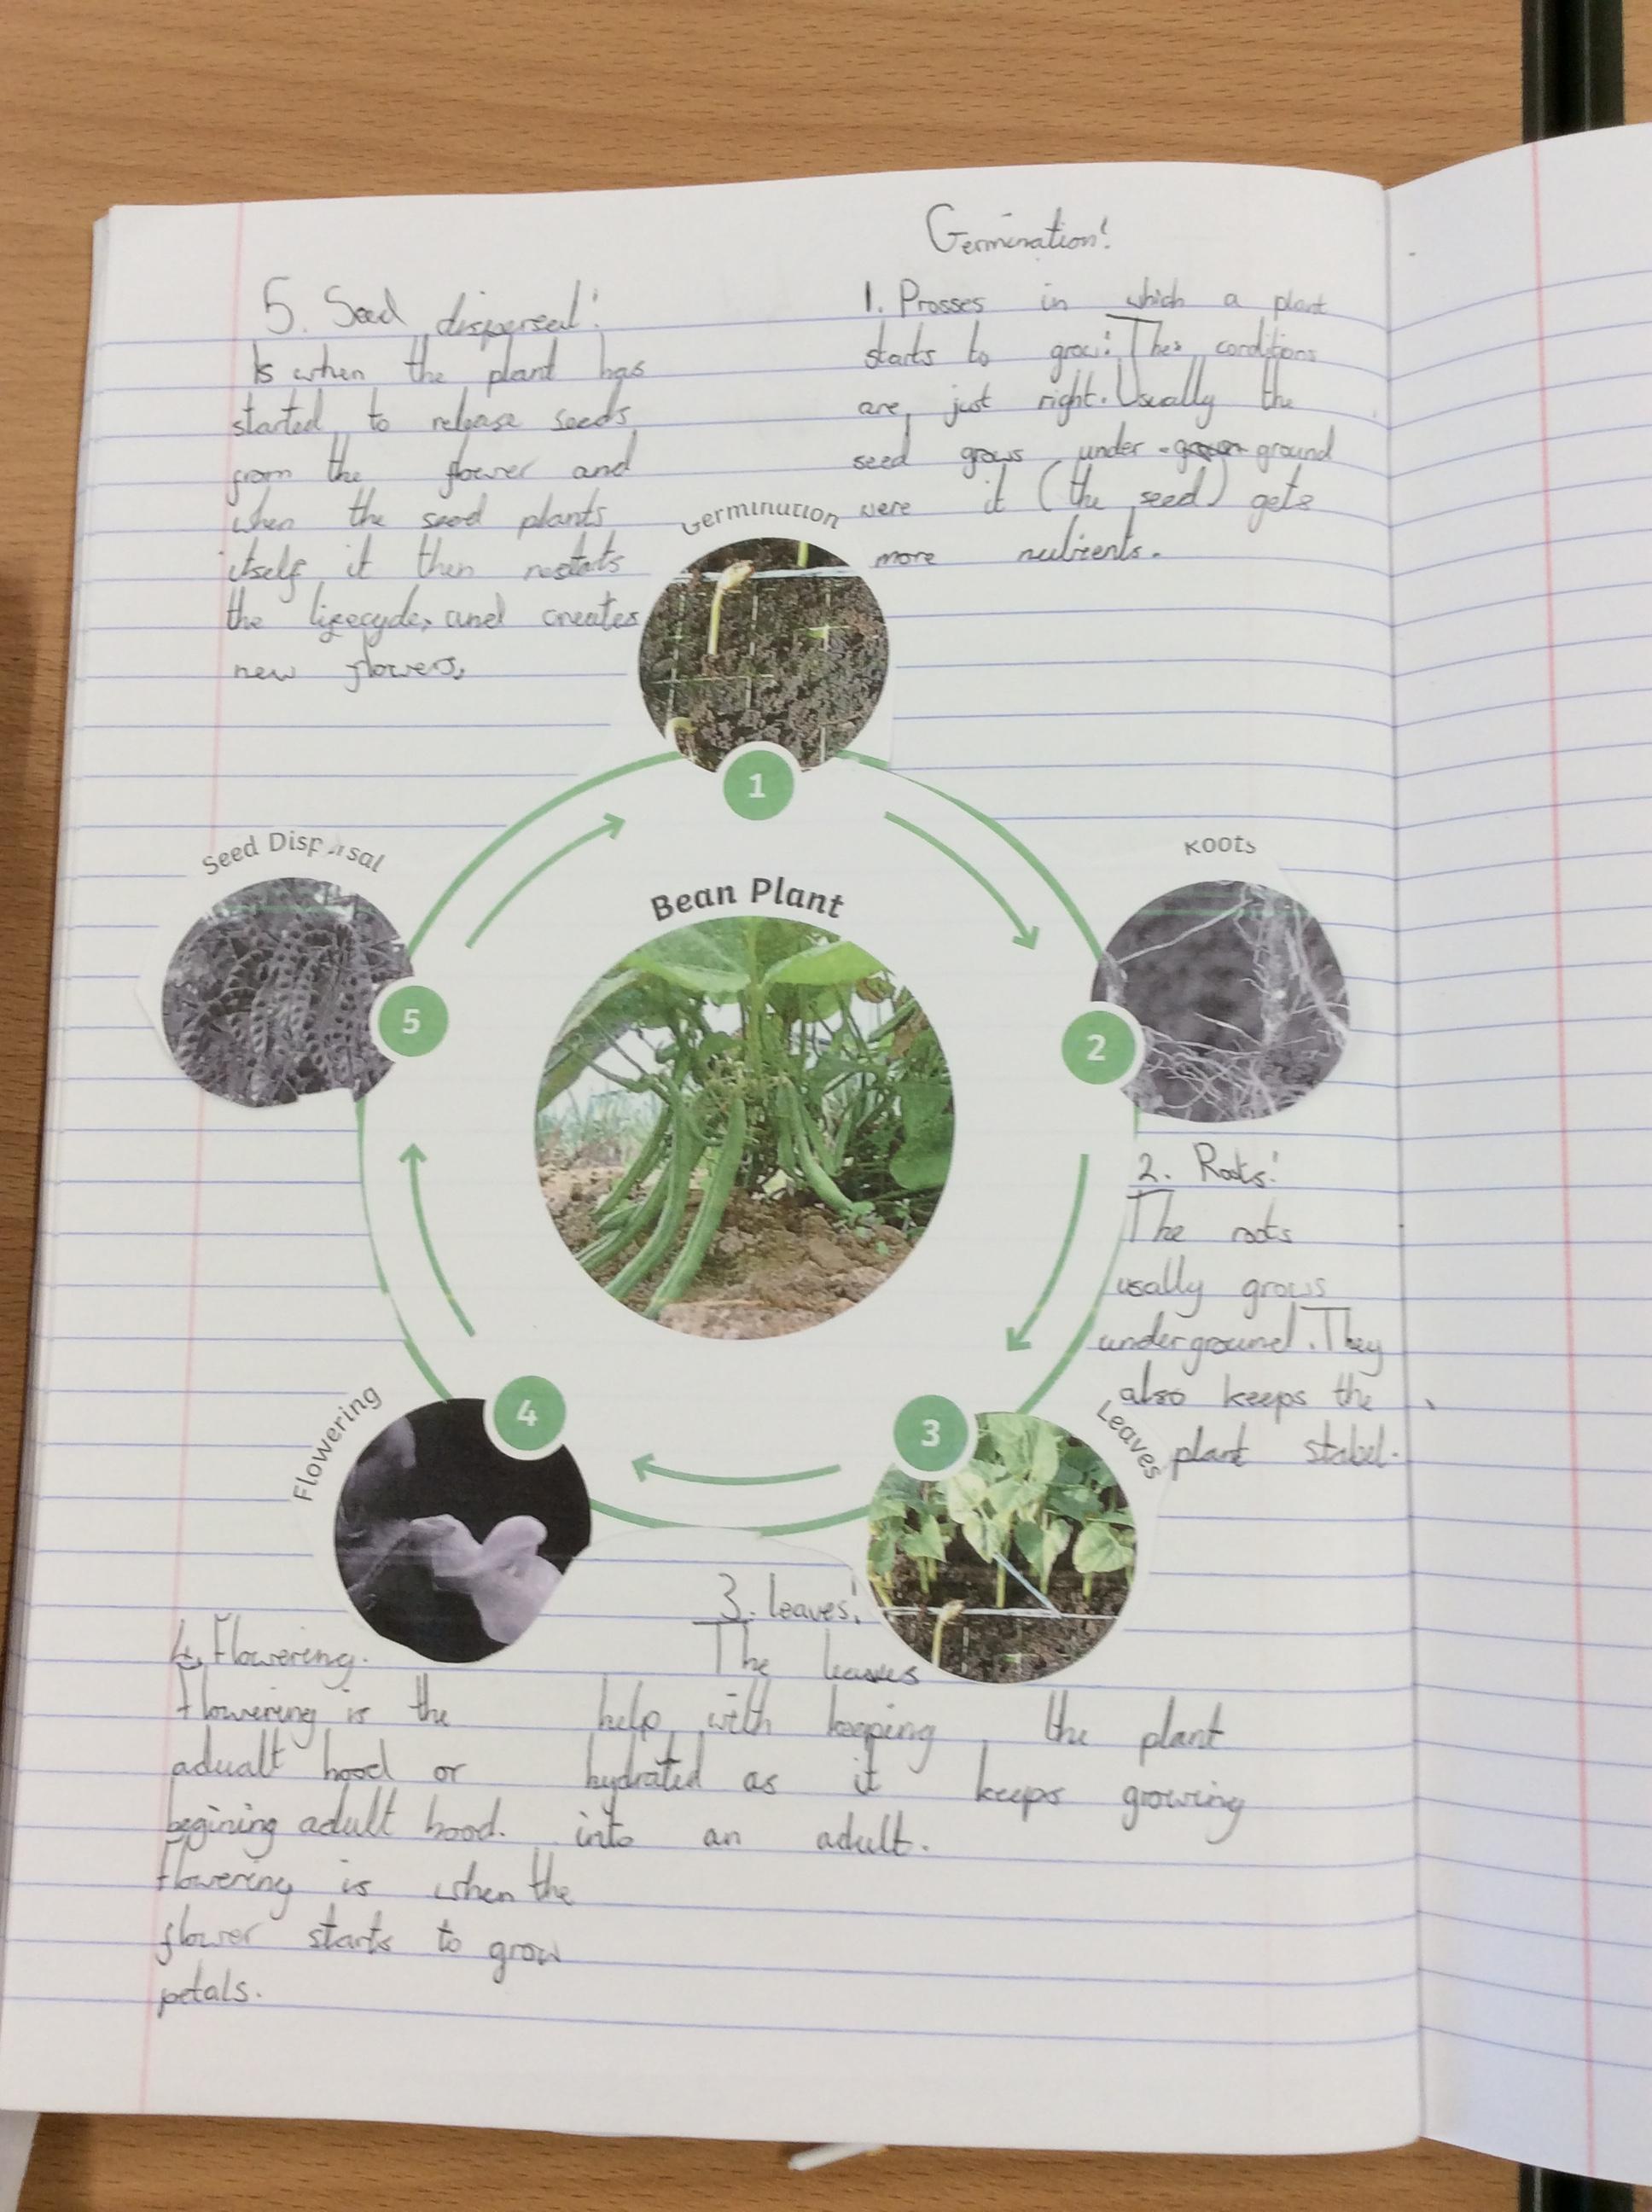 Germination!
1. Prosses in which a plant
starts to grow. The conditions
are just right. Usually the
seed grows under ground
were it (the seed) gets
more nutrients.
5. Seed dispersal:
Is when the plant has
started to release seeds
from the flower and
when the seed plants
itself it then restats
the lifecycle, and creates
new flowers.
Germination
1
Seed Dispersal
5
Bean Plant
Roots
2
2. Roots:
The roots
usally grows
underground. They
also keeps the
plant stabel.
Leaves
3
Flowering
4
3. leaves:
The leaves
help with keeping the plant
hydrated as it keeps growing
into an adult.
4. Flowering.
Flowering is the
adualt hood or
begining adult hood.
Flowering is when the
flower starts to grow
petals.